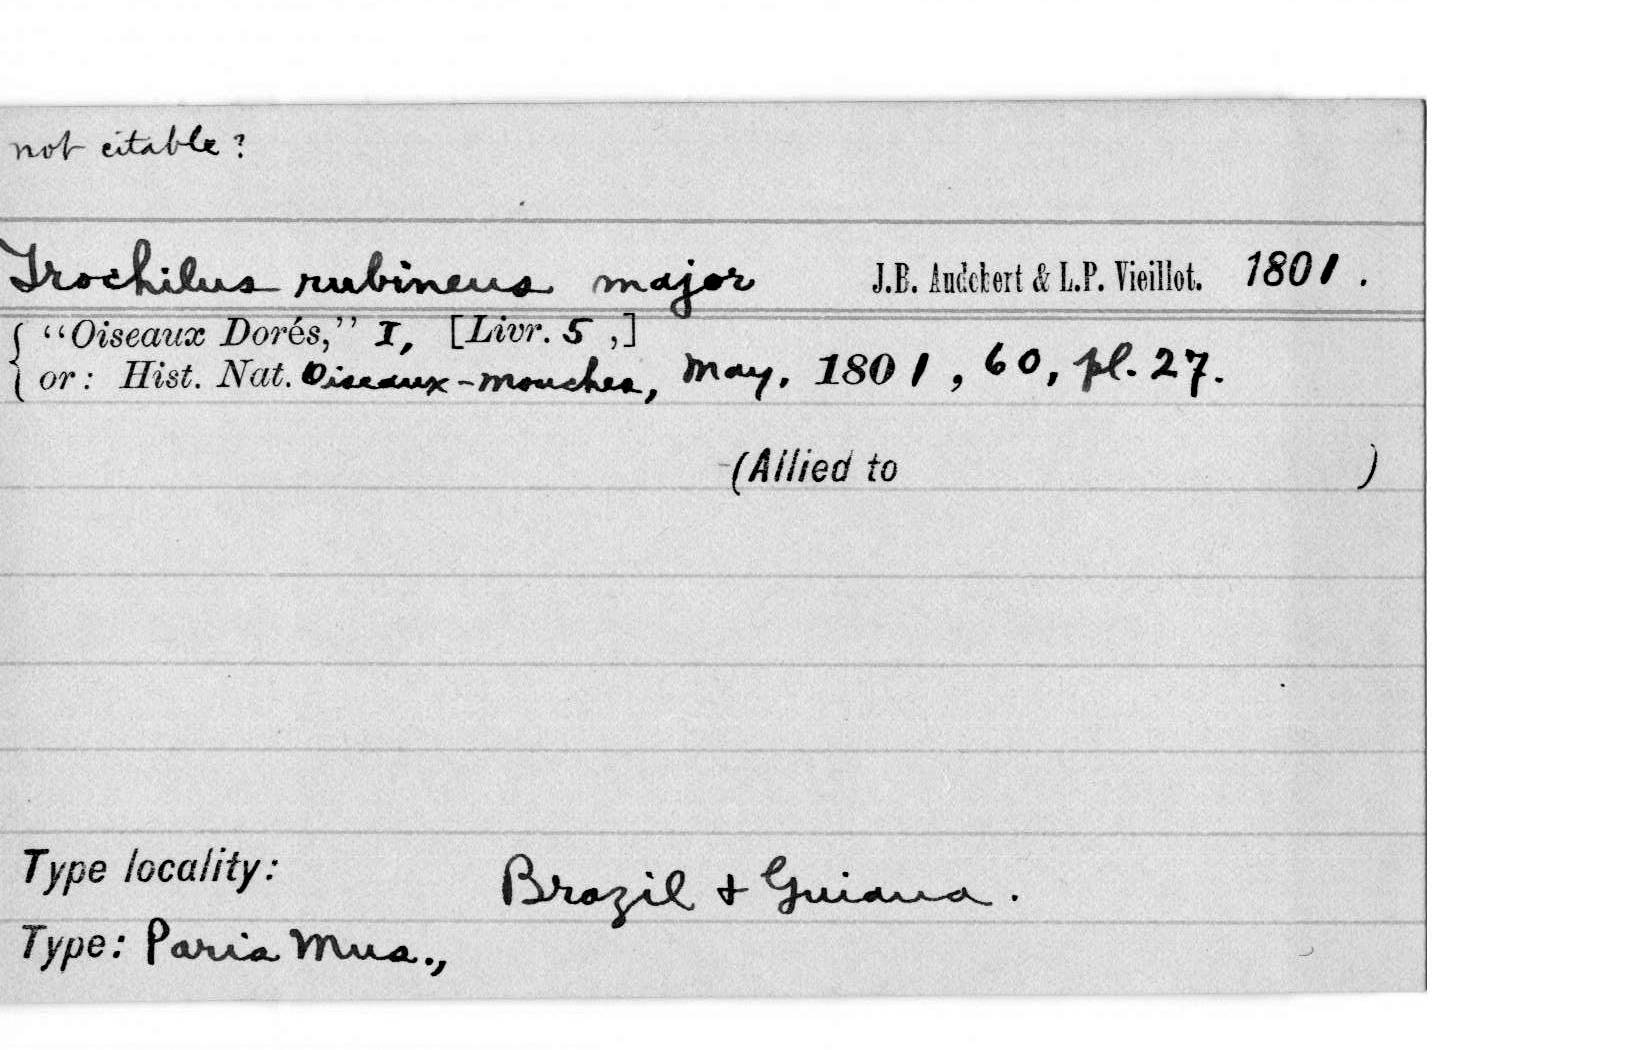 not citable?
Trochilus rubineus major J.B. Audebert & L.P. Vieillot. 1801.
"Oiseaux Dorés," I, [Livr. 5 ,]
or: Hist. Nat. Oiseaux-mouches, May, 1801, 60, pl. 27.
(Allied to )
Type locality: Brazil & Guiana.
Type: Paris Mus.,